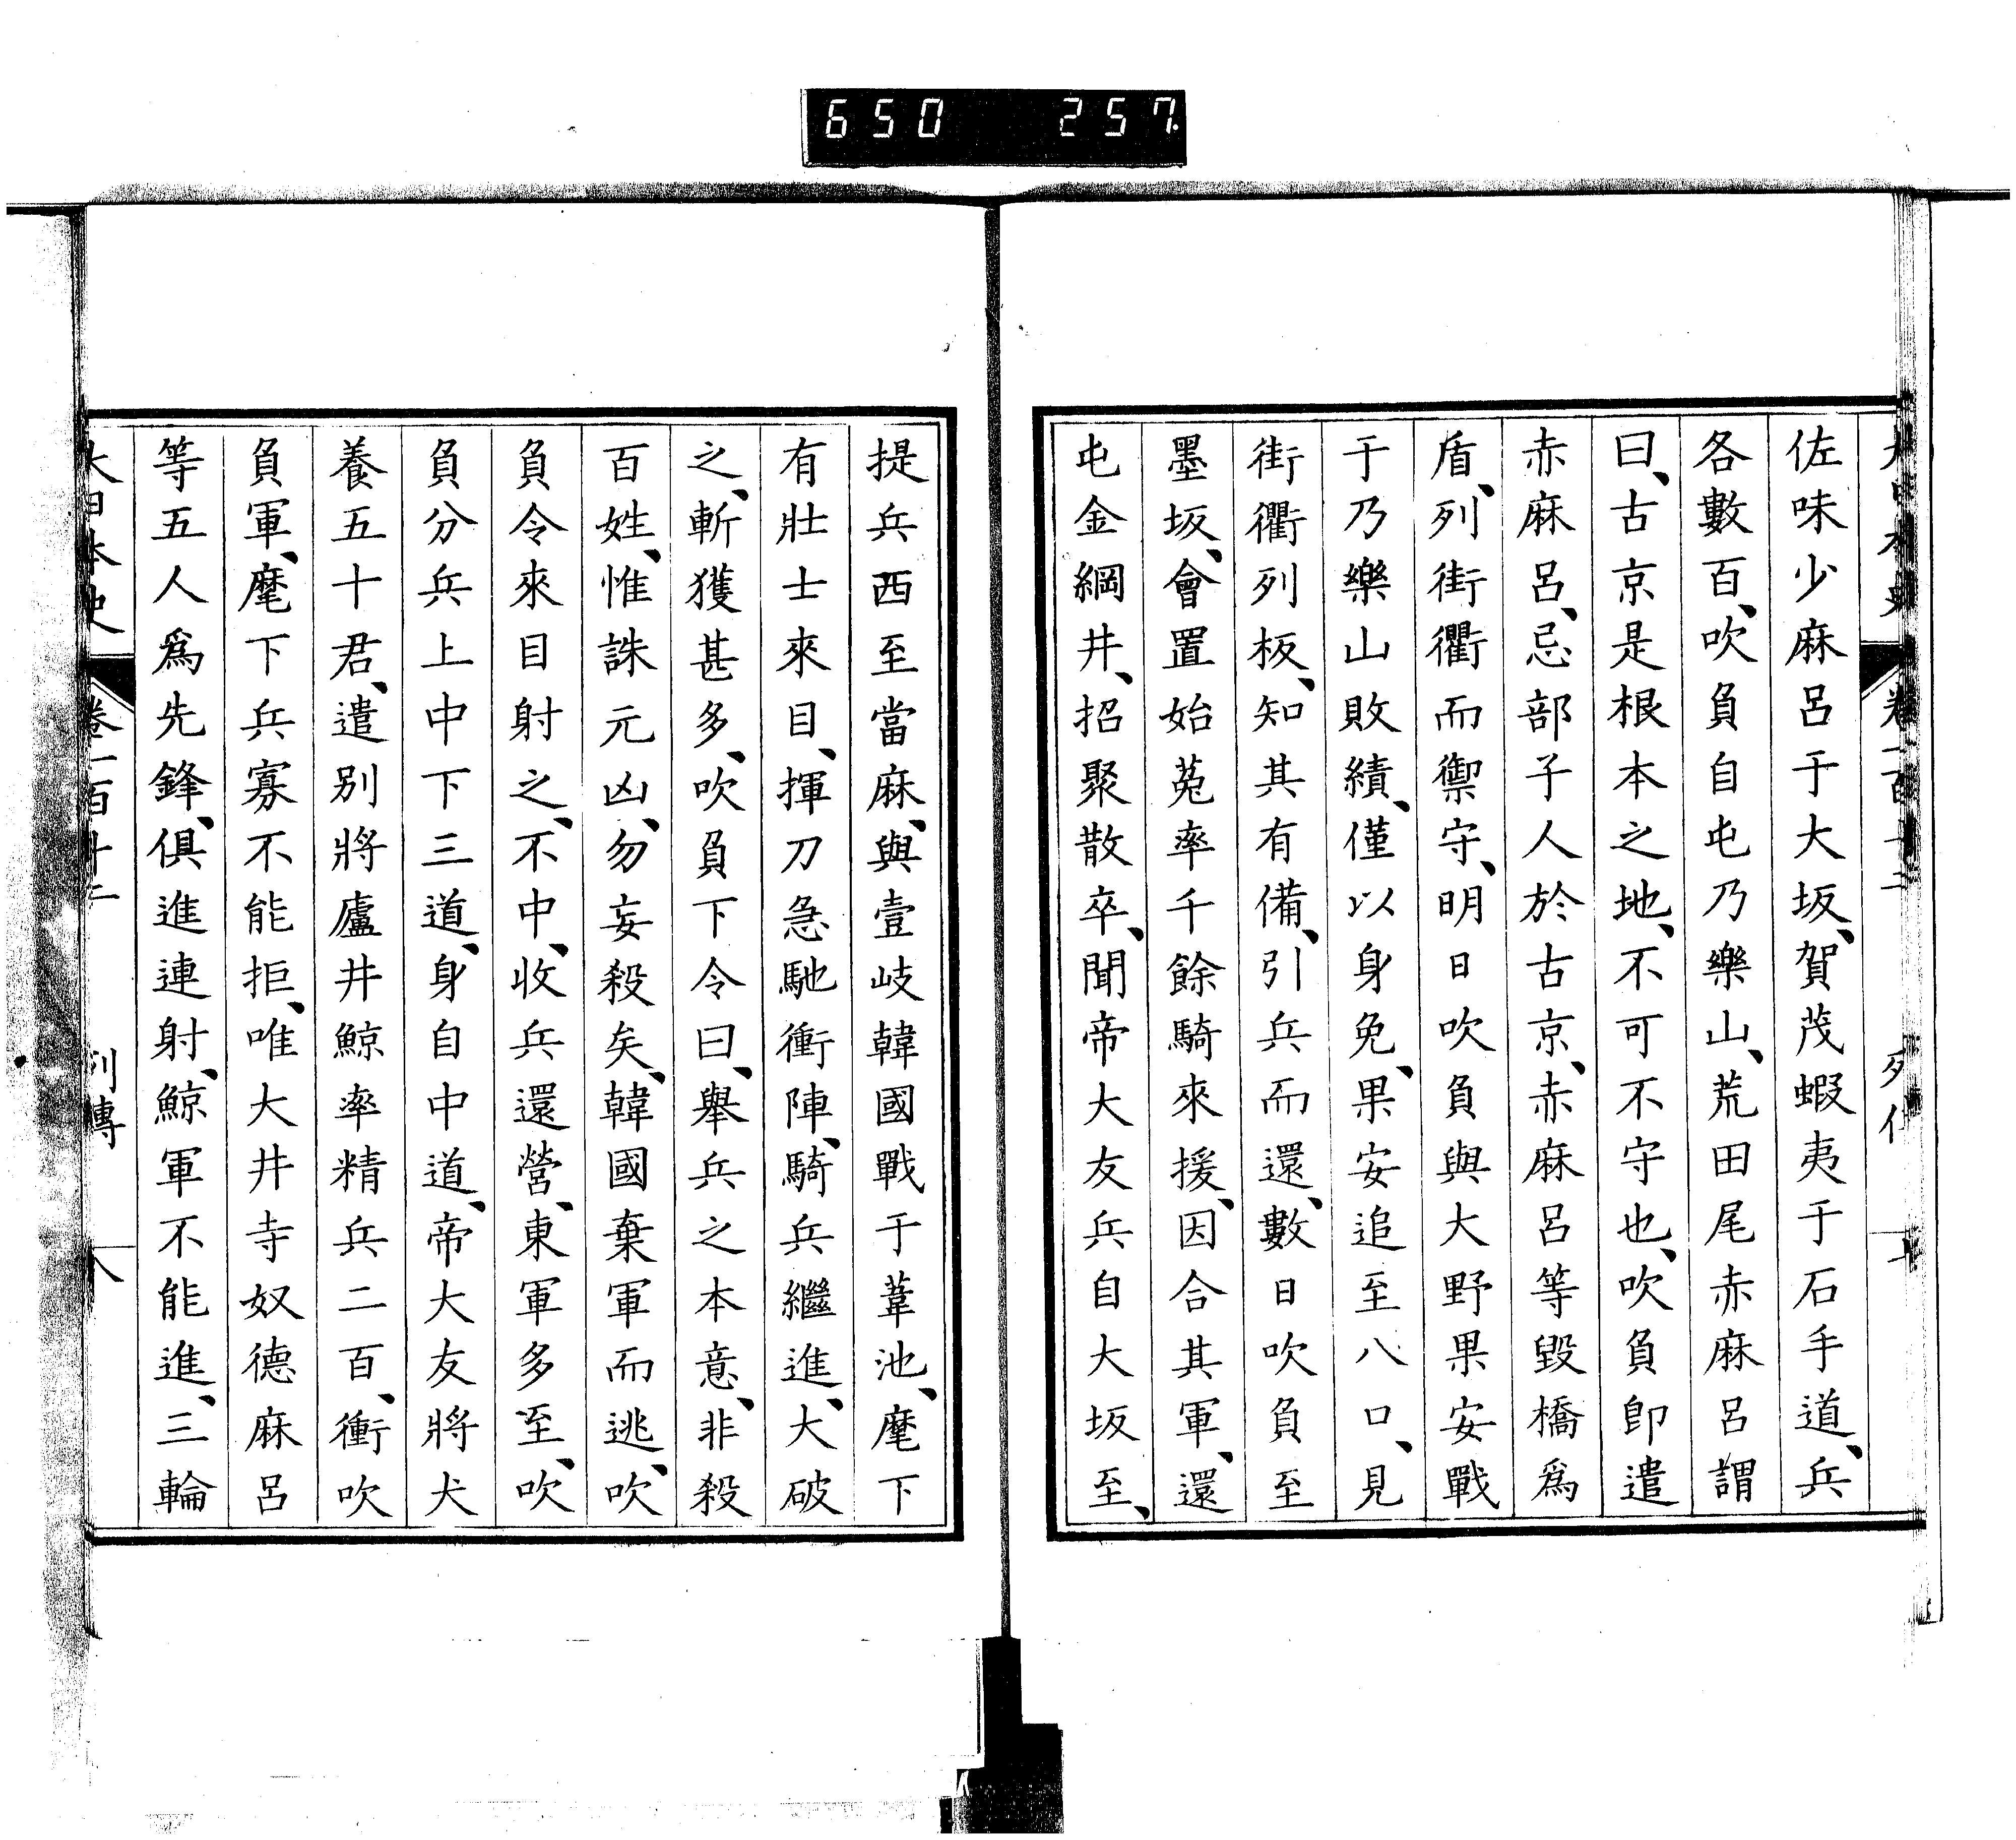 650 257
佐味少麻呂于大坂、賀茂蝦夷于石手道、兵
各數百、吹負自屯乃樂山、荒田尾赤麻呂謂
曰、古京是根本之地、不可不守也、吹負卽遣
赤麻呂、忌部子人於古京、赤麻呂等毀橋爲
盾、列街衢而禦守、明日吹負與大野果安戰
于乃樂山敗績、僅以身免、果安追至八口、見
街衢列板、知其有備、引兵而還、數日吹負至
墨坂、會置始菟率千餘騎來援、因合其軍、還
屯金綱井、招聚散卒、聞帝大友兵自大坂至、
提兵西至當麻、與壹岐韓國戰于葦池、麾下
有壯士來目、揮刀急馳衝陣、騎兵繼進、大破
之、斬獲甚多、吹負下令曰、舉兵之本意、非殺
百姓、惟誅元凶、勿妄殺矣、韓國棄軍而逃、吹
負令來目射之、不中、收兵還營、東軍多至、吹
負分兵上中下三道、身自中道、帝大友將犬
養五十君、遣別將廬井鯨率精兵二百、衝吹
負軍、麾下兵寡不能拒、唯大井寺奴德麻呂
等五人爲先鋒、俱進連射、鯨軍不能進、三輪
大日本史 卷一百十二 列傳 八